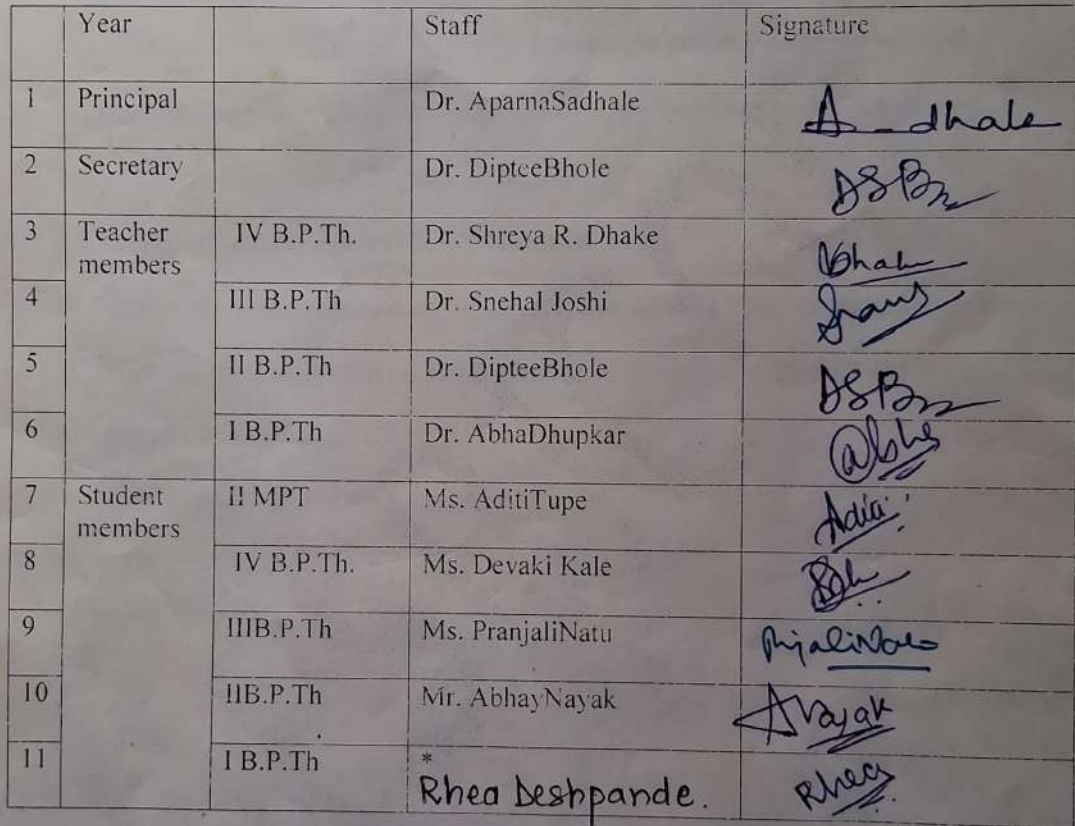 Year Staff Signature
1 Principal Dr. AparnaSadhale A dhale
2 Secretary Dr. DipteeBhole DSB
3 Teacher members IV B.P.Th. Dr. Shreya R. Dhake
4 III B.P.Th Dr. Snehal Joshi
5 II B.P.Th Dr. DipteeBhole DSB
6 I B.P.Th Dr. AbhaDhupkar Abha
7 Student members II MPT Ms. AditiTupe Aditi
8 IV B.P.Th. Ms. Devaki Kale
9 IIIB.P.Th Ms. PranjaliNatu
10 IIB.P.Th Mr. AbhayNayak ANayak
11 I B.P.Th *
Rhea Deshpande. Rhea